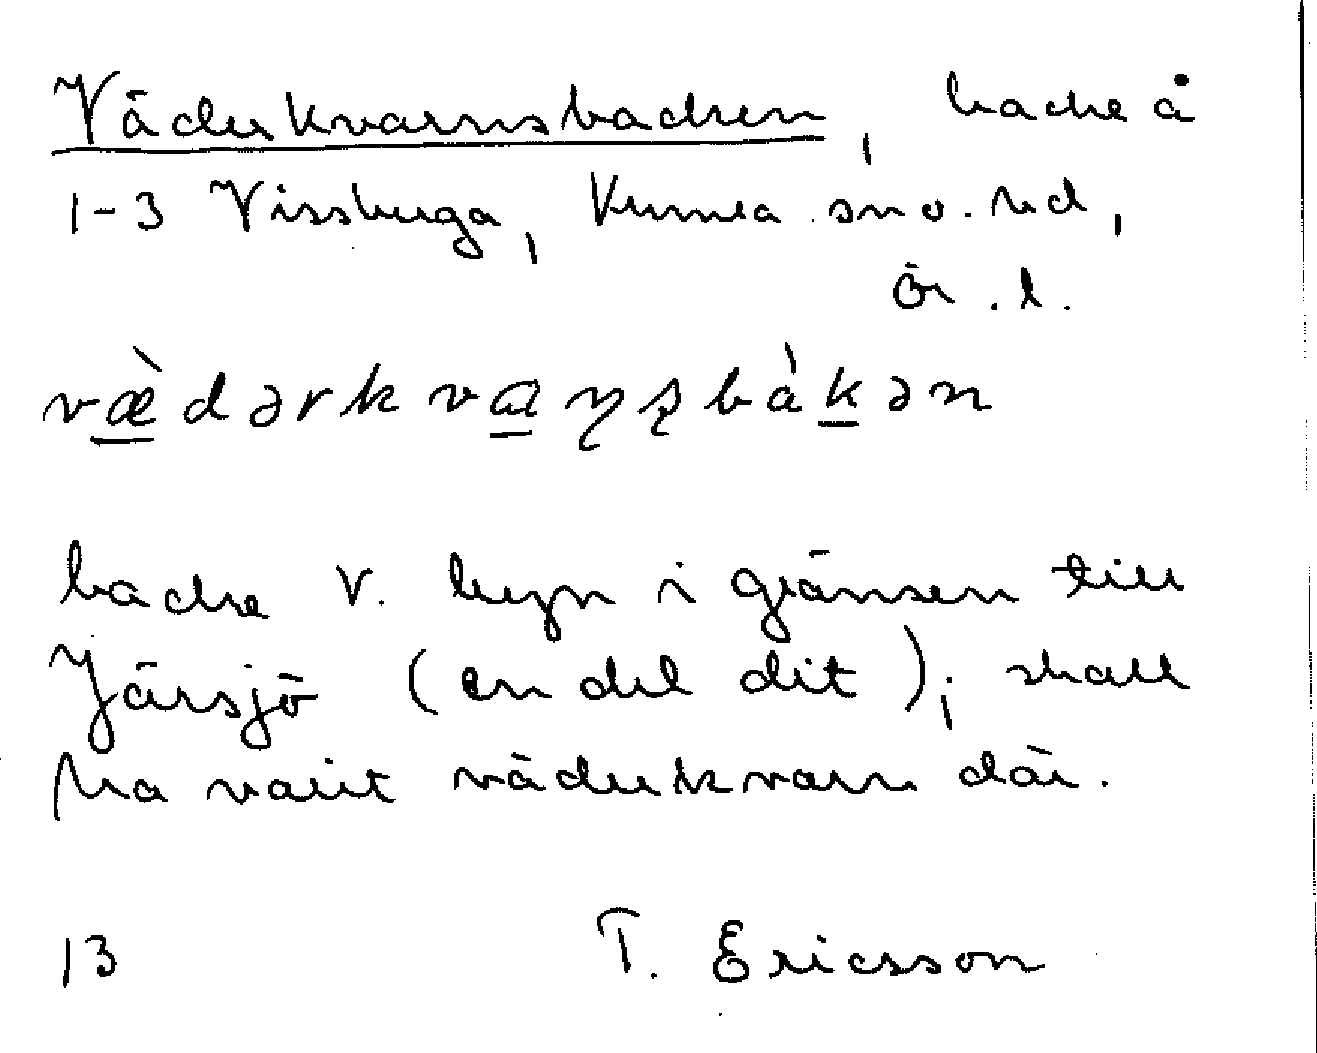 Väderkvarnsbacken, backe å
1-3 Vissbuga, Kumla sn o. hd,
Ör. l.
væ̀dərkvaɳʂbàkən
backe V. byn i gränsen till
Järsjö (en del dit); skall
ha varit väderkvarn där.
13 T. Ericsson